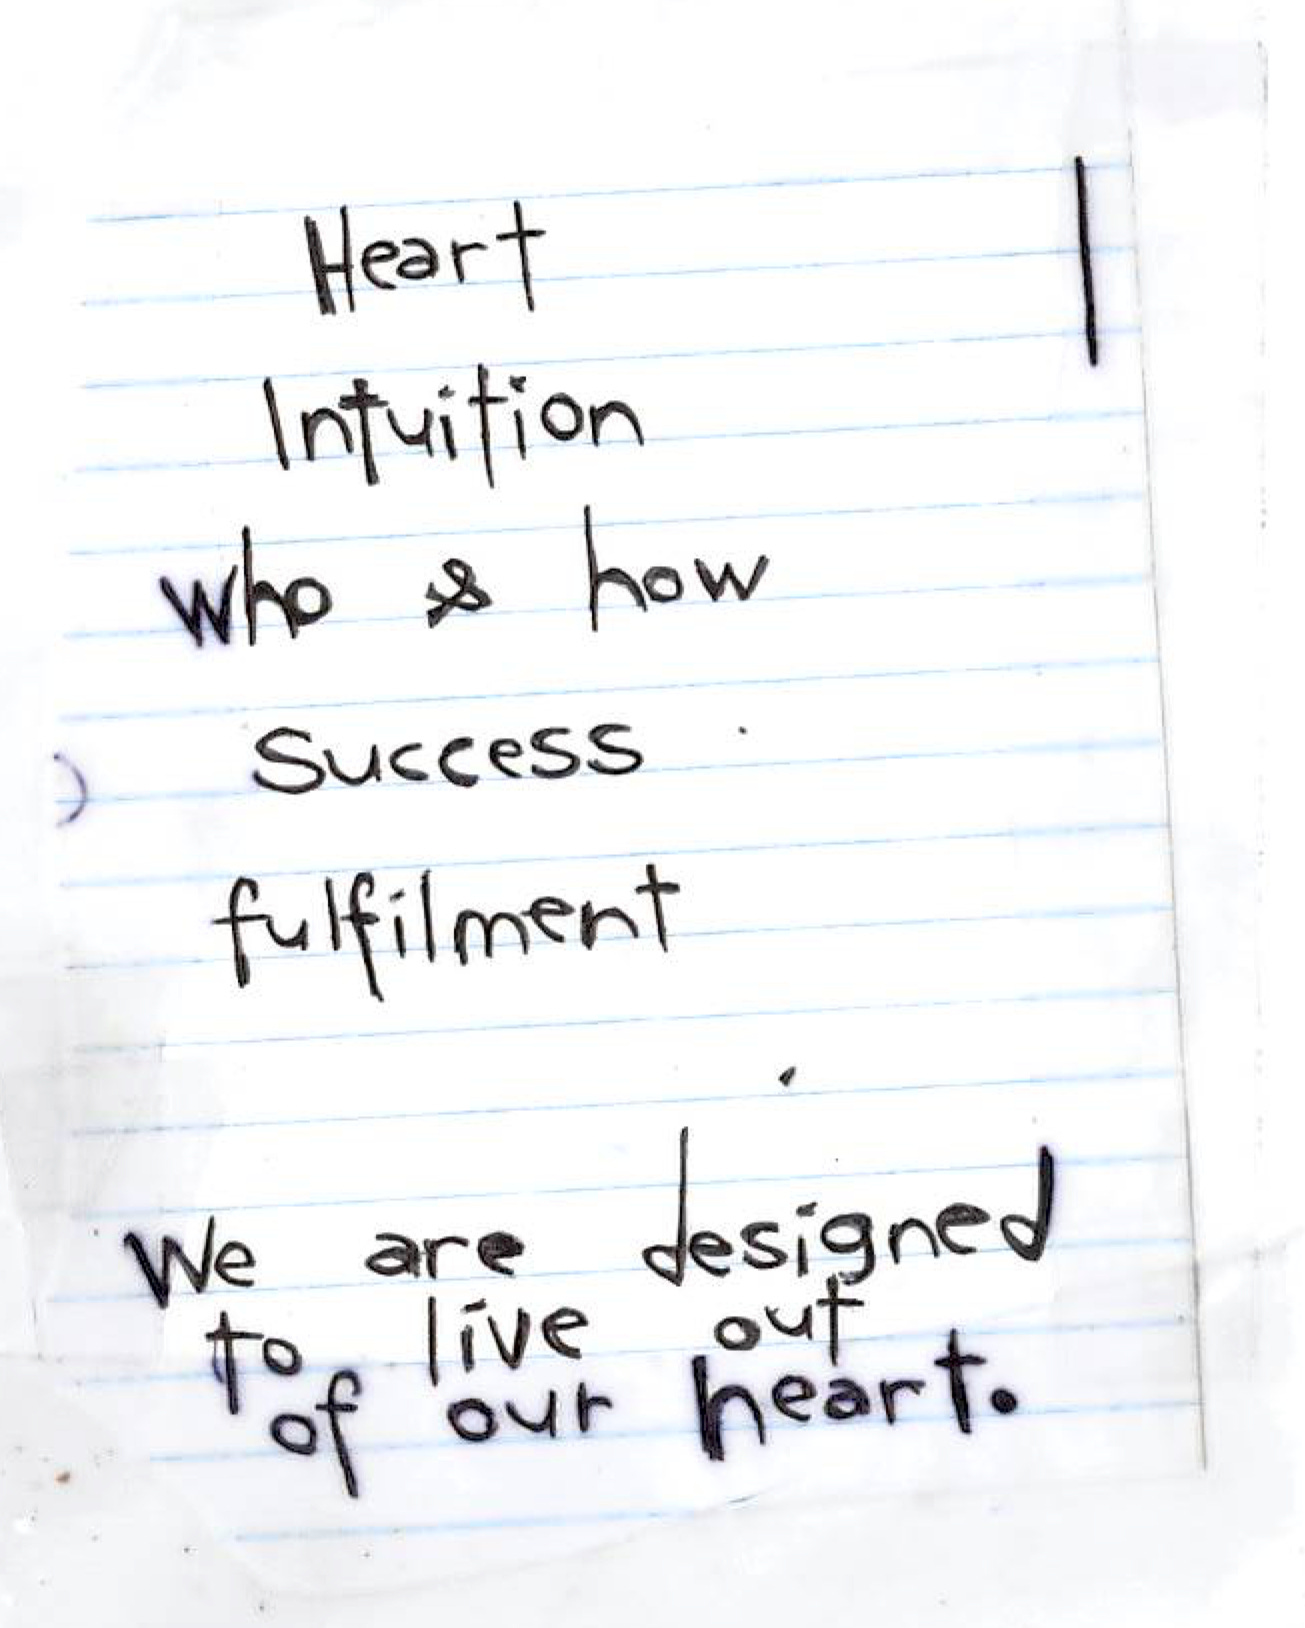 Heart
Intuition
Who & how
Success
fulfilment
We are designed
to live out
of our heart.